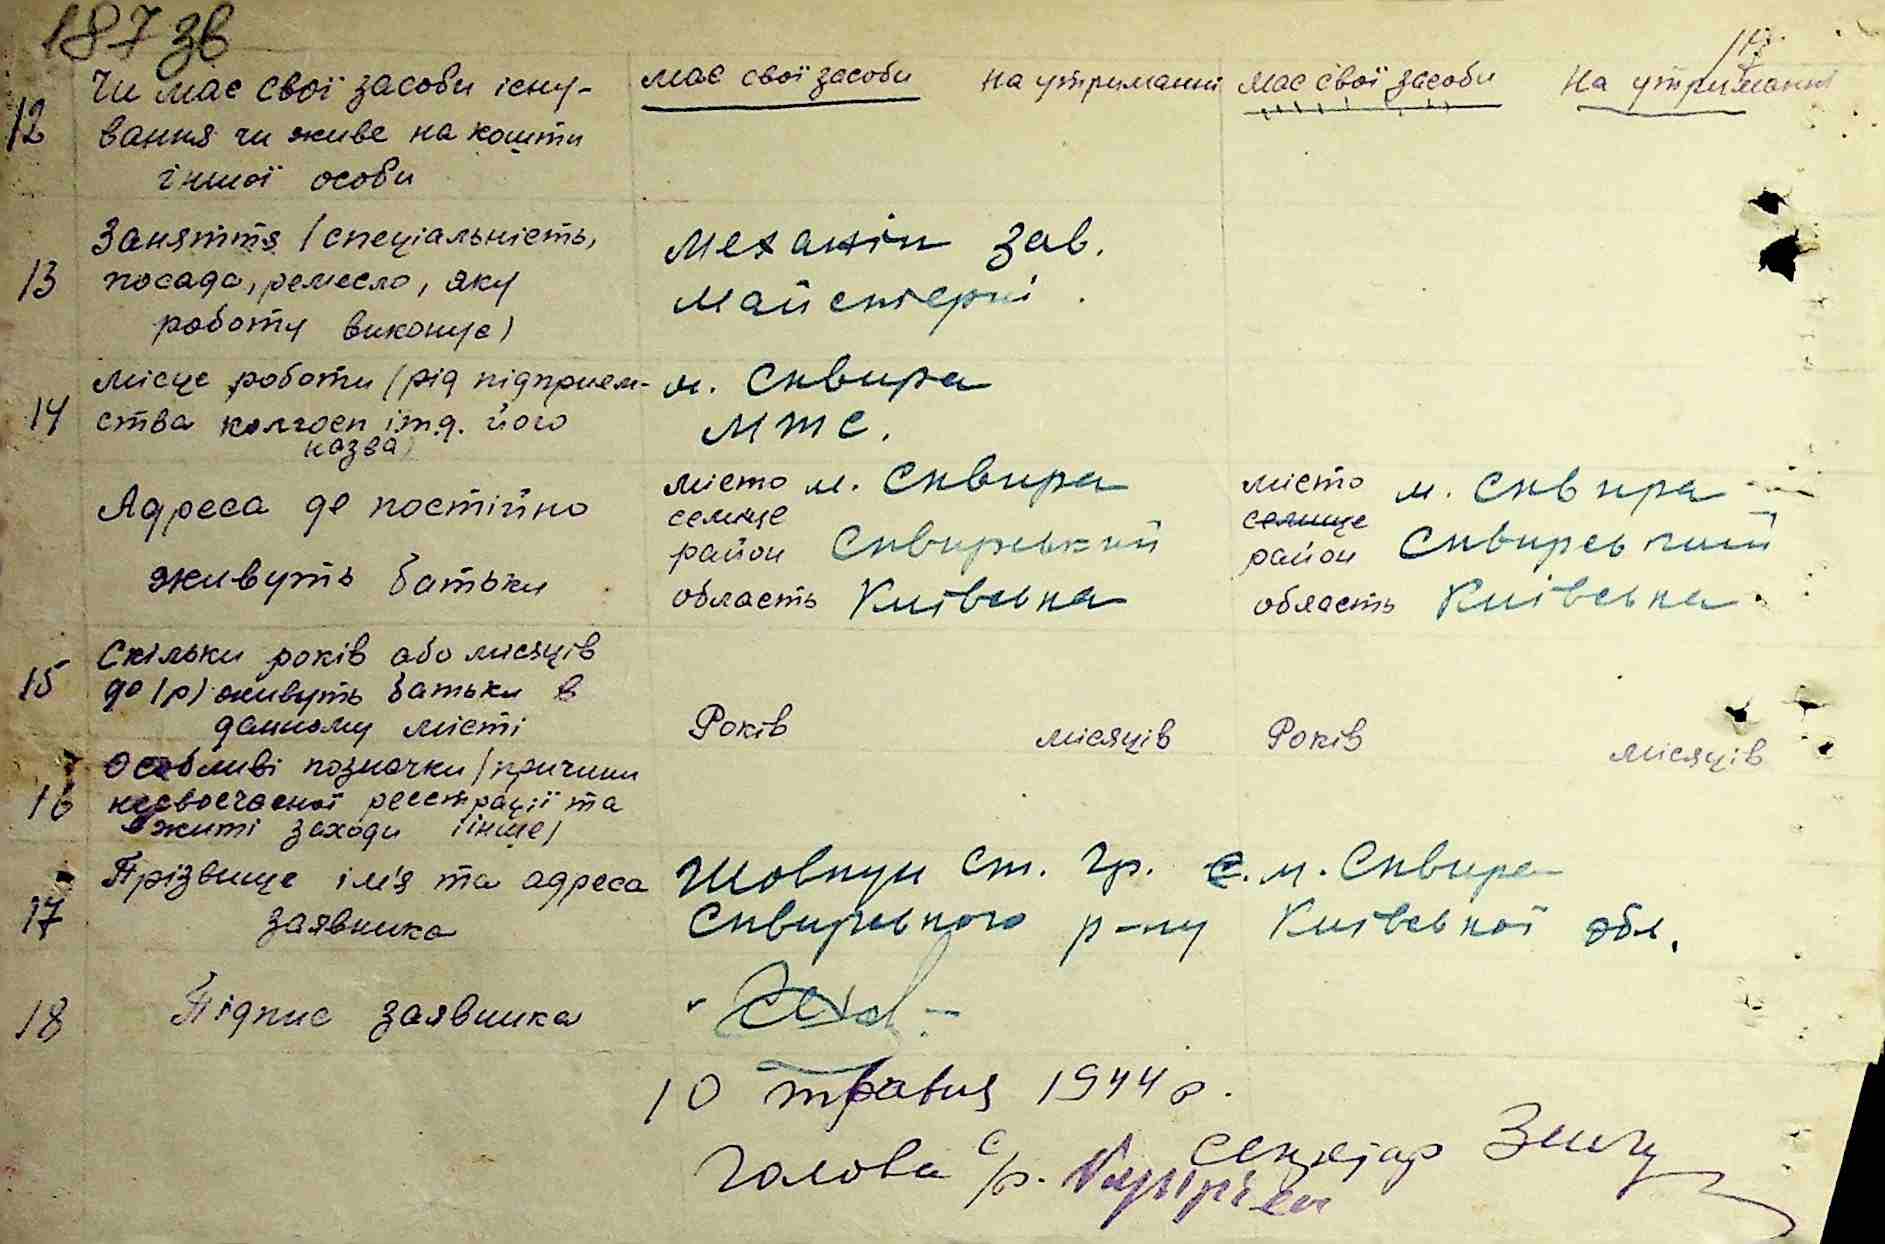 187 зв
12 Чи має свої засоби існу- має свої засоби на утриманні має свої засоби на утриманні
вання чи живе на кошти
іншої особи
Заняття (спеціальність, механік зав.
13 посада, ремесло, яку майстерні.
роботу виконує)
місце роботи (рід підприєм- м. Сквира
14 ства колгосп і т.д. його МТС.
назва)
Адреса де постійно місто м. Сквира місто м. Сквира
селище селище
район Сквирський район Сквирський
живуть батьки область Київська область Київська
Скільки років або місяців
15 до (р) живуть батьки в
данному місті Років місяців Років місяців
Особливі позначки (причини
16 несвоєчасної реєстрації та
вжиті заходи і інше)
Прізвище ім'я та адреса Шовкун Ст. Гр. с. м. Сквира
17 заявника Сквирського р-ну Київської обл.
18 Підпис заявника
10 травня 1944 р.
Голова с/р. секретар